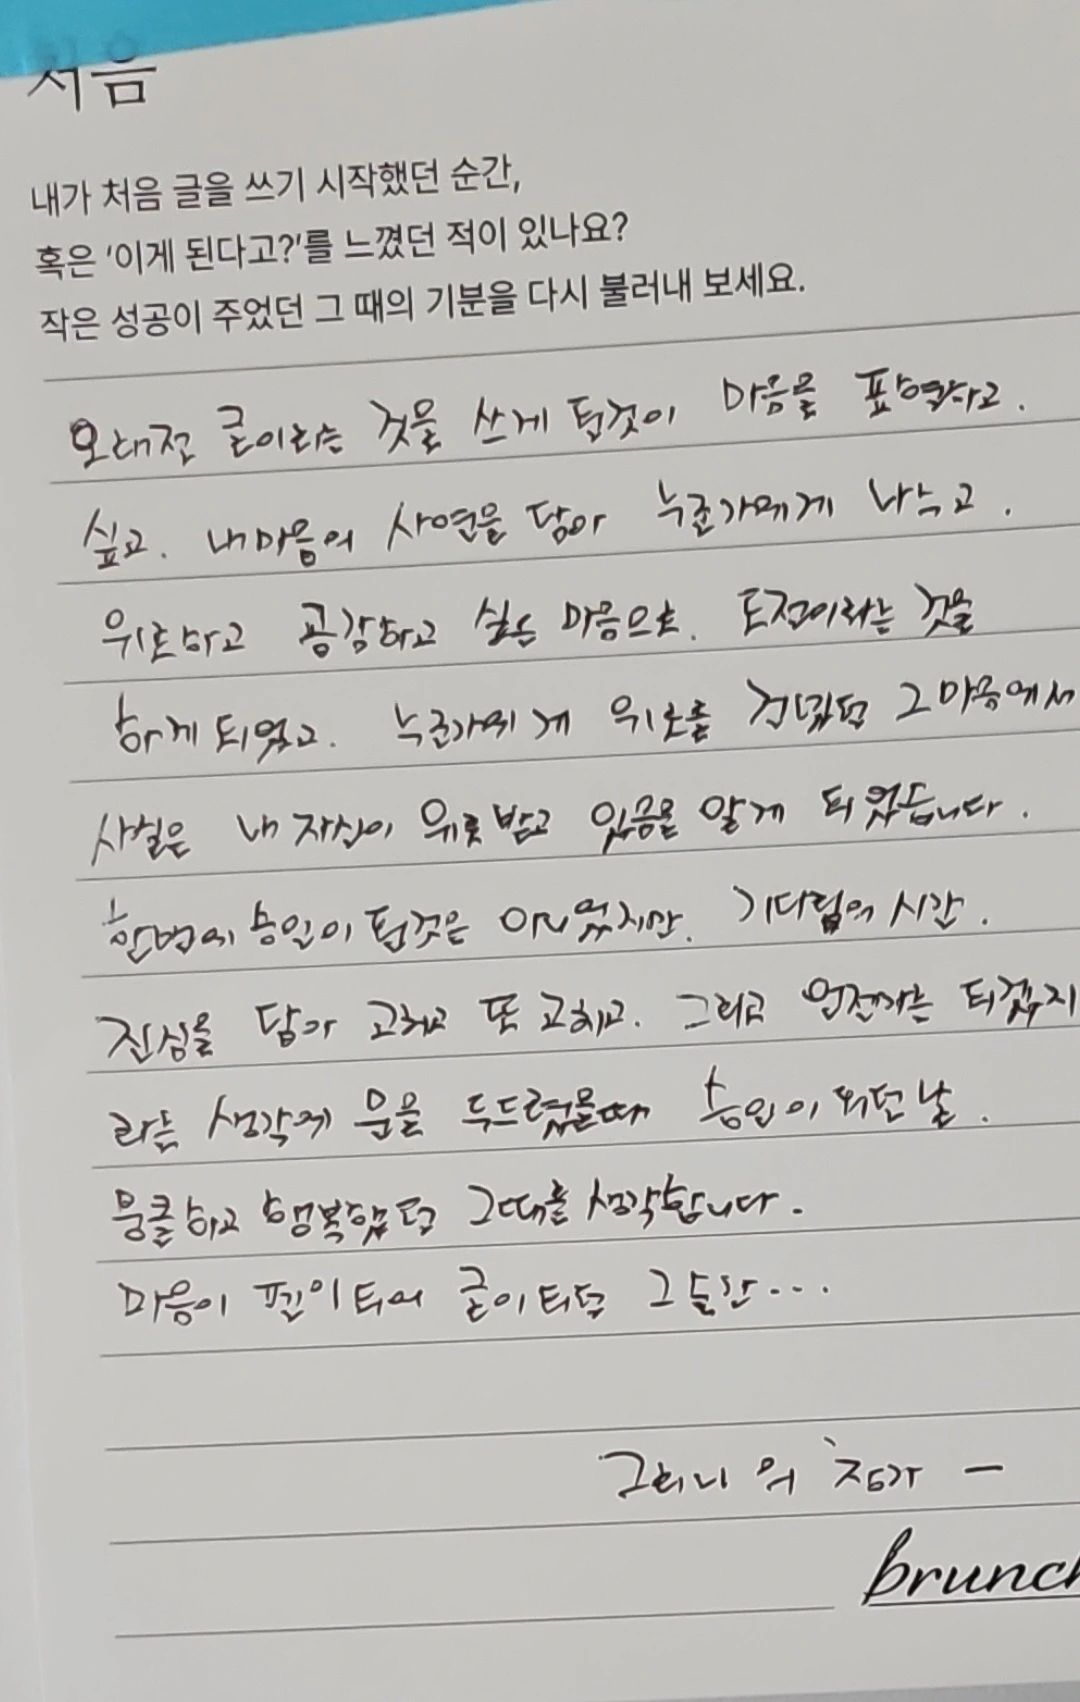 처음
내가 처음 글을 쓰기 시작했던 순간,
혹은 '이게 된다고?'를 느꼈던 적이 있나요?
작은 성공이 주었던 그 때의 기분을 다시 불러내 보세요.
오래전 글이라는 것을 쓰게 된것이 마음을 표현하고.
싶고. 내마음의 사연을 담아 누군가에게 나누고.
위로하고 공감하고 싶은 마음으로. 도전이라는 것을
하게 되었고. 누군가에게 위로를 건넸던 그 마음에서
사실은 내 자신이 위로 받고 있음을 알게 되었습니다.
한번에 승인이 된것은 아니었지만. 기다림의 시간.
진심을 담아 고치고 또 고치고. 그리고 언젠가는 되겠지
라는 생각에 문을 두드렸을때 승인이 되던 날.
뭉클하고 행복했던 그때를 생각합니다.
마음이 편이 되어 글이 되던 그 날
그리니 의
brunch